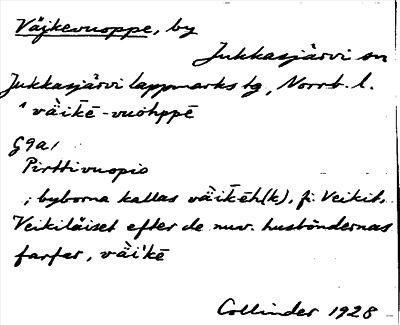 Väjkevuoppe, by
Jukkasjärvi sn
Jukkasjärvi lappmarks tg, Norrb. l.
' väikē-vuòhppē
G9a,
Pirttivuopio
; byborna kallas väikēh(k), fi. Veikit,
Veikiläiset efter de nuv. husböndernas
farfar, väi'kē
Collinder 1928